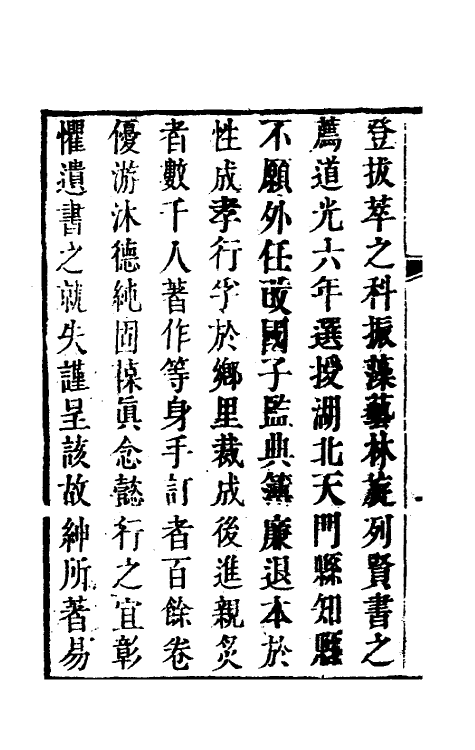 登拔萃之科振藻藝林旋列賢書之
薦道光六年選授湖北天門縣知縣
不願外任改國子監典簿廉退本於
性成孝行孚於鄉里裁成後進親炙
者數千人著作等身手訂者百餘卷
優游沐德純固葆眞念懿行之宜彰
懼遺書之就失謹呈該故紳所著易